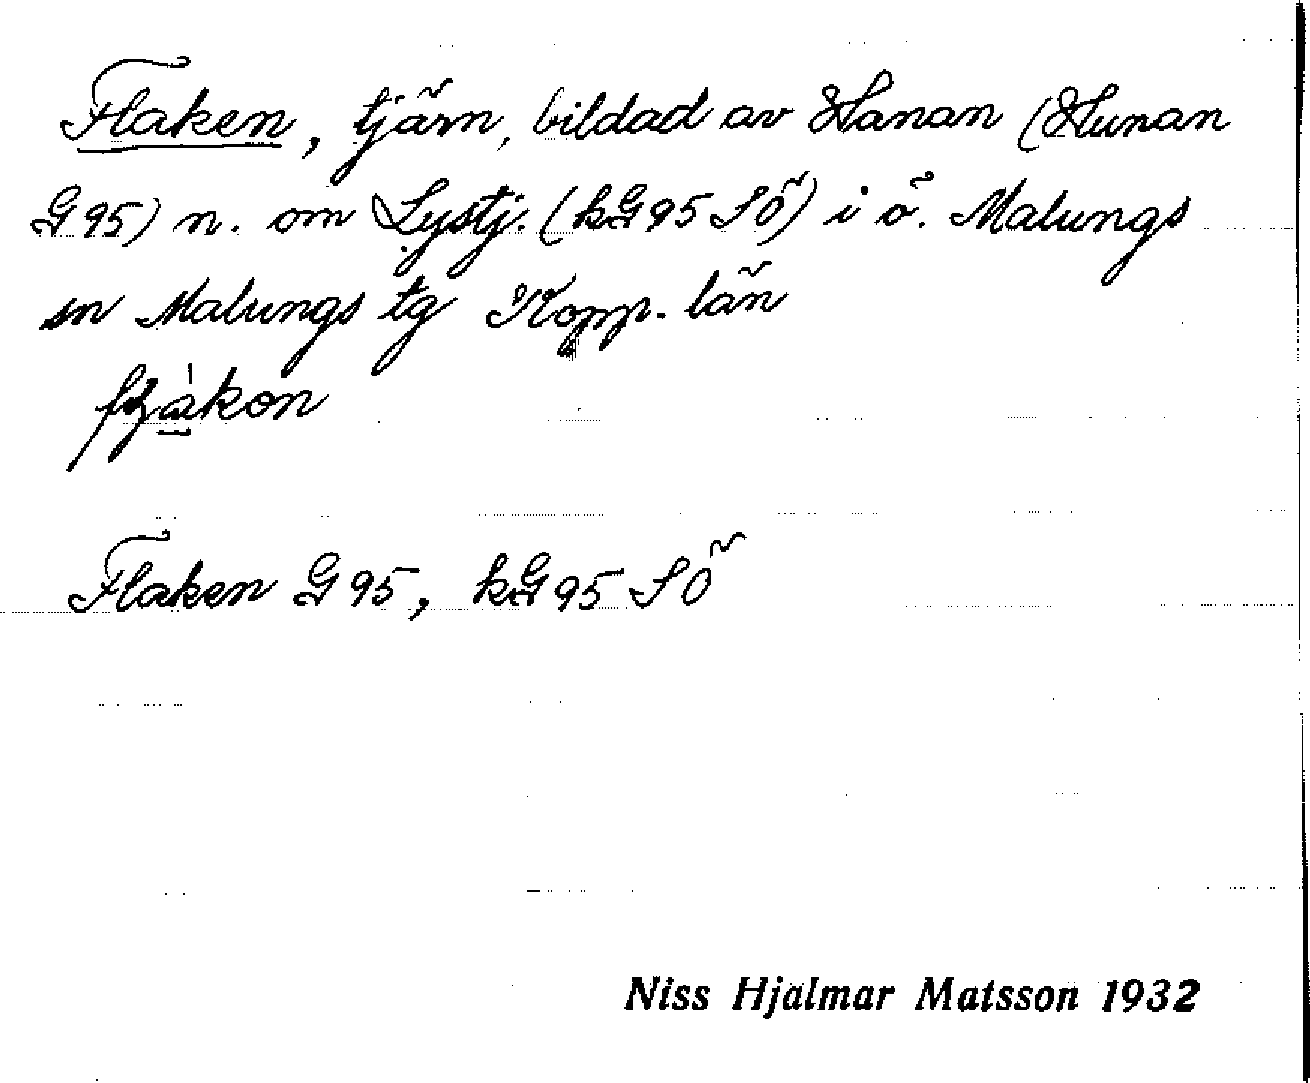 Flaken, tjärn, bildad av Hanan (Hunan
G95) n. om Lystj. (kG95 SÖ) i ö. Malungs
sn Malungs tg Kopp. län
Flaken G95, kG95 SÖ
Niss Hjalmar Matsson 1932